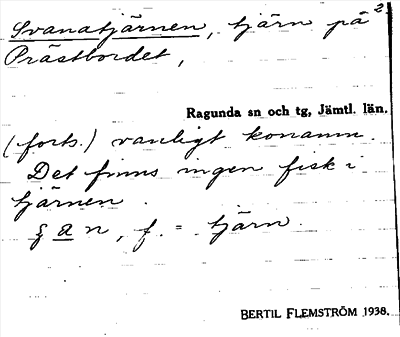 Svanatjärnen, tjärn på 2
Prästbordet,
Ragunda sn och tg, Jämtl. län.
(forts.) vanligt konamn.
Det finns ingen fisk i
tjärnen.
a n, f. = tjärn.
BERTIL FLEMSTRÖM 1938.